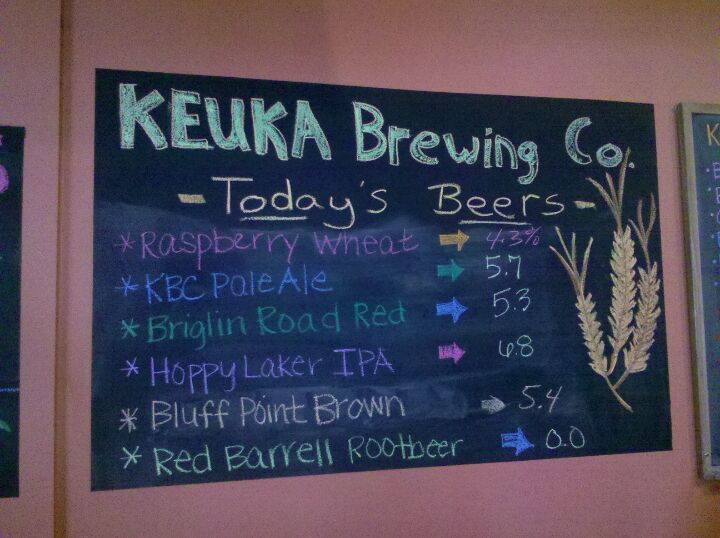 KEUKA Brewing Co.
- Today's Beers -
* Raspberry Wheat → 4.3%
* KBC Pale Ale → 5.7
* Briglin Road Red → 5.3
* Hoppy Laker IPA → 6.8
* Bluff Point Brown → 5.4
* Red Barrell Rootbeer → 0.0